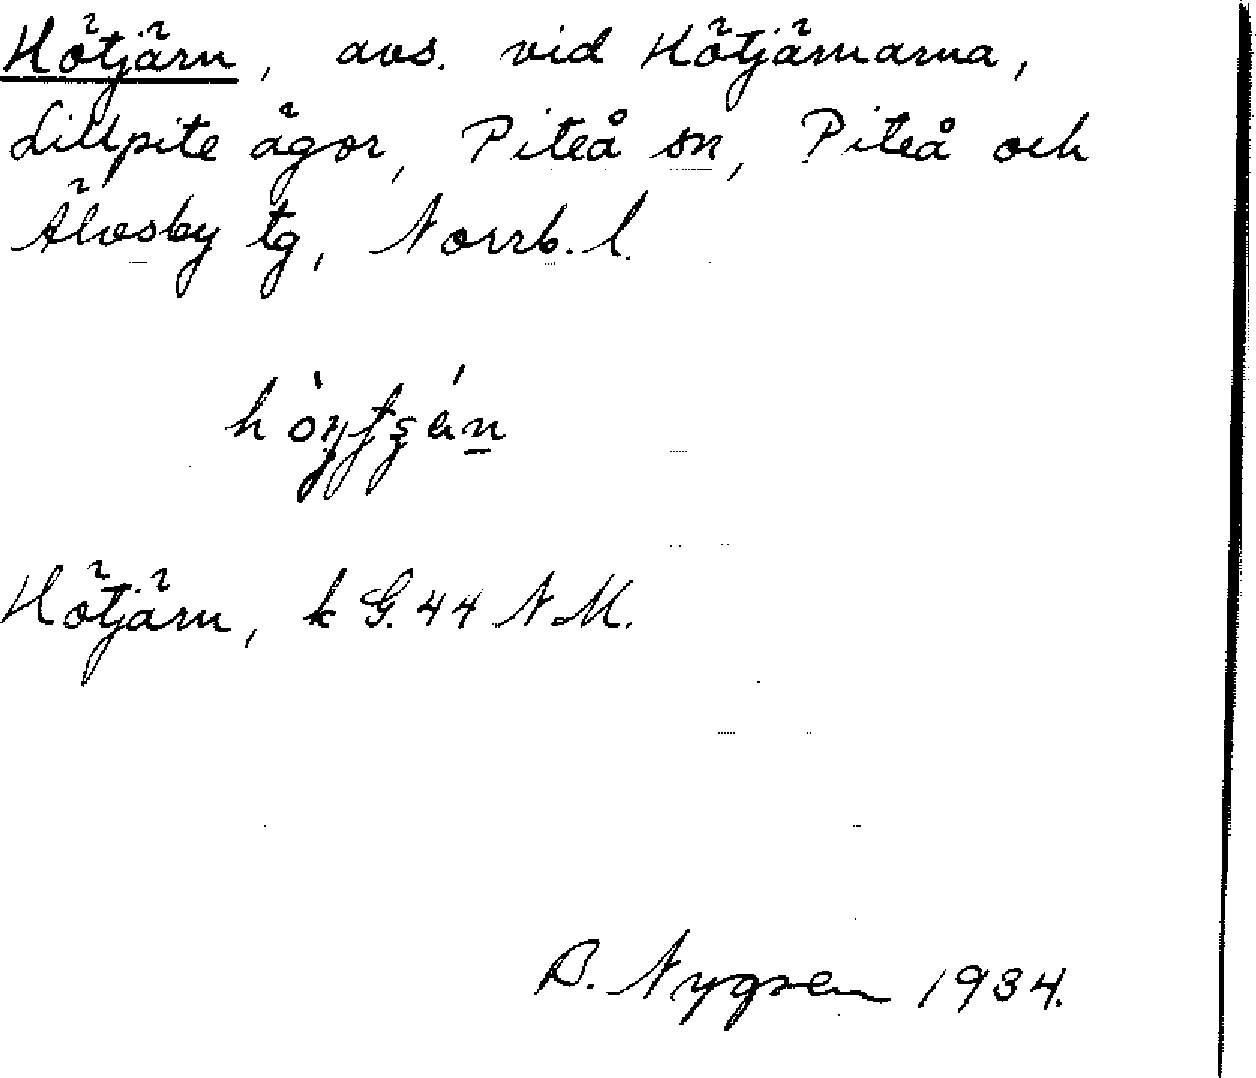 Hötjärn, avs. vid Hötjärnarna,
Lillpite ägor, Piteå sn, Piteå och
Älvsby tg, Norrb. l.
Hötjärn, k G. 44 N.M.
B. Nygren 1934.